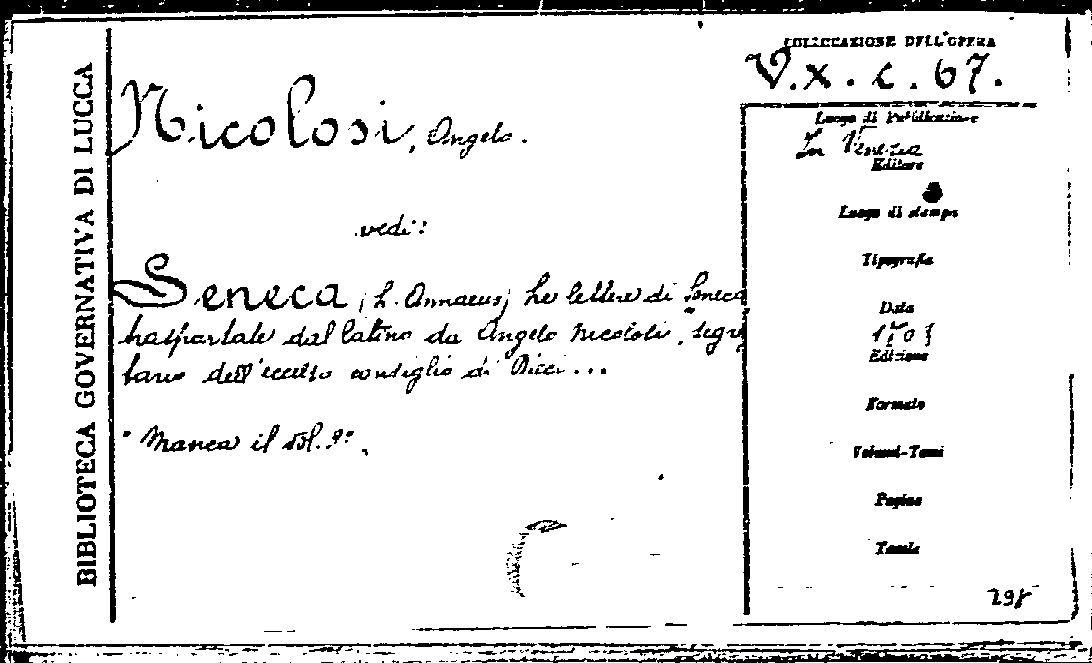 BIBLIOTECA GOVERNATIVA DI LUCCA
COLLOCAZIONE DELL'OPERA
V.x.c.67.
Nicolosi, Angelo.
Luogo di Pubblicazione
In Venezia
Editore
Luogo di stampa
vedi:
Tipografia
Seneca, L. Annaeus; Le lettere di Seneca
trasportate dal latino da Angelo Nicolosi, segre
tario dell'eccelso consiglio di Dieci...
Data
Edizione
Formato
"Manca il vol.
Volumi-Tomi
Pagine
Tavole